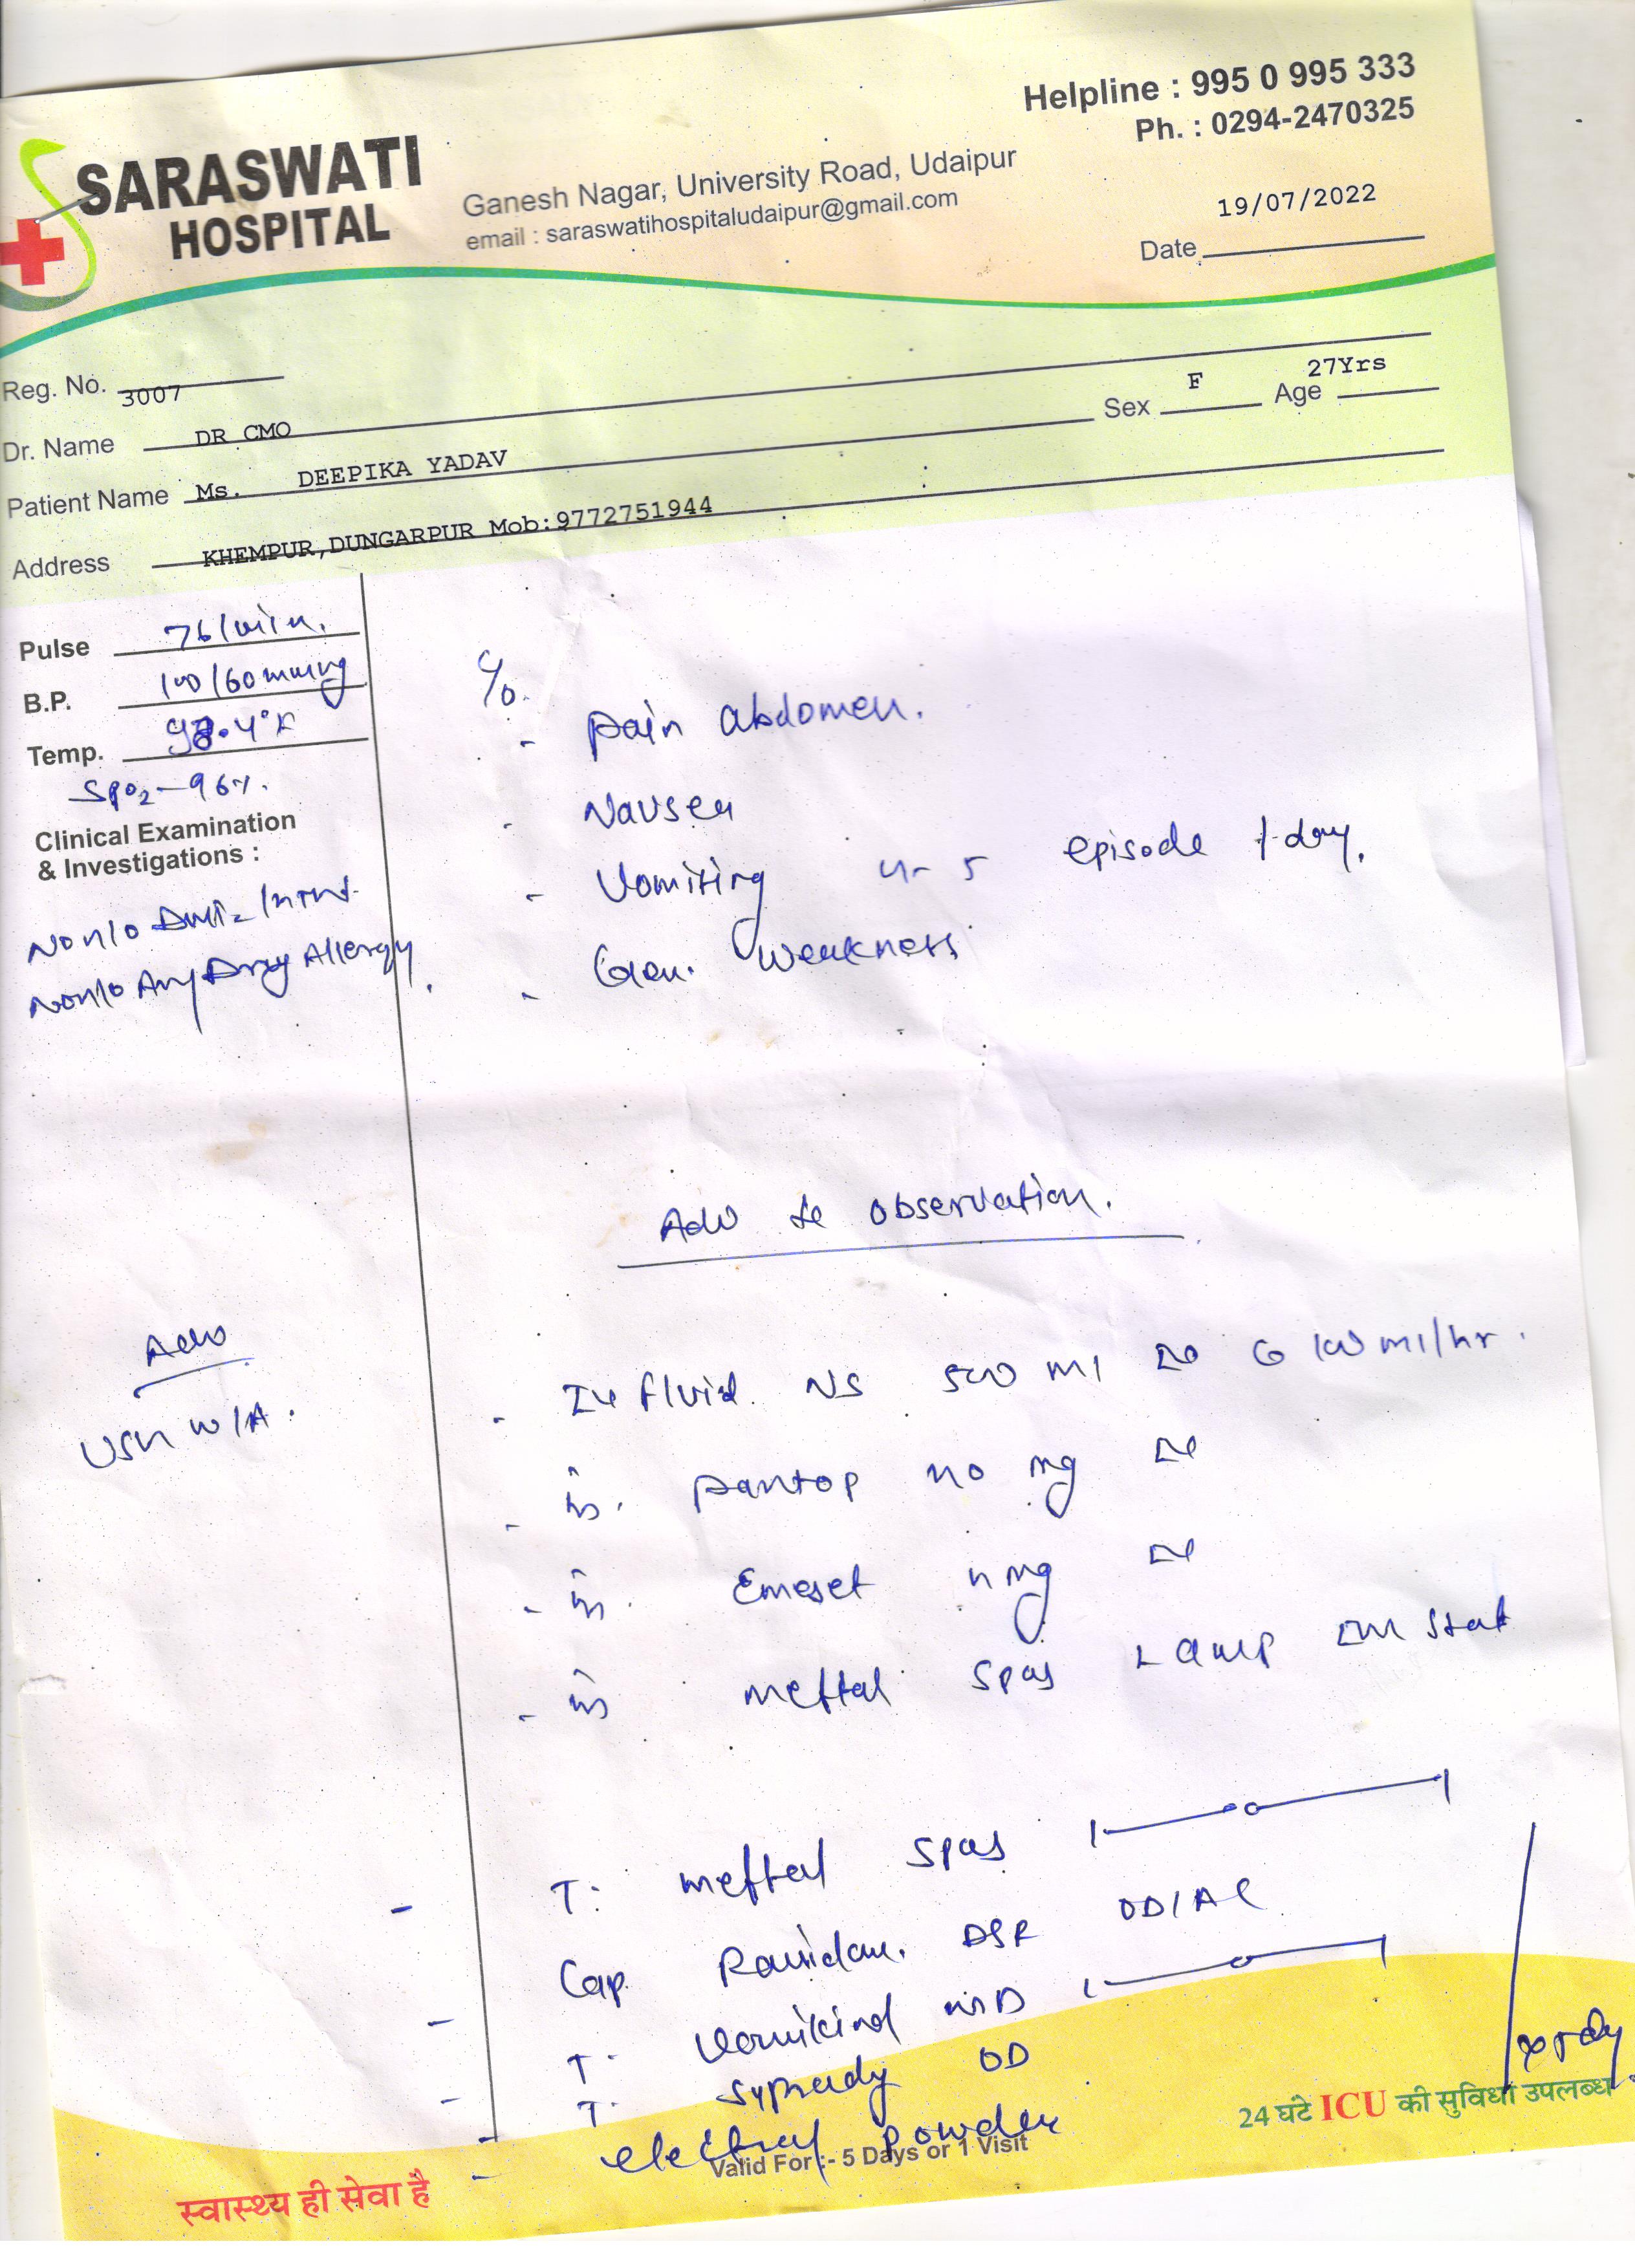 Helpline : 995 0 995 333
Ph. : 0294-2470325
SARASWATI
HOSPITAL
Ganesh Nagar, University Road, Udaipur
email : saraswatihospitaludaipur@gmail.com
19/07/2022
Date
Reg. No. 3007
Dr. Name DR CMO
Sex F Age 27Yrs
Patient Name Ms. DEEPIKA YADAV
Address KHEMPUR,DUNGARPUR Mob:9772751944
Pulse 76/min.
B.P. 100/60mmHg
Temp. 98.4°F
SPO2-96%.
Clinical Examination
& Investigations :
No h/o
No h/o Any Drug Allergy.
C/o.
- Pain abdomen.
- Nausea
- Vomiting 4-5 episode 1 day.
- Gen. weakness
Adv observation.
Adv
USG W/A.
- IV fluid. NS 500 ml 100 ml/hr.
- Pantop 40 mg
- Emeset 4 mg
- meftal spas 1 amp IM stat
- T. meftal spas
- Cap. DSR OD/AC
- T. Vomikind MD
- T. OD
- electral powder
x 5 day
24 घंटे ICU की सुविधा उपलब्ध
Valid For :- 5 Days or 1 Visit
स्वास्थ्य ही सेवा है